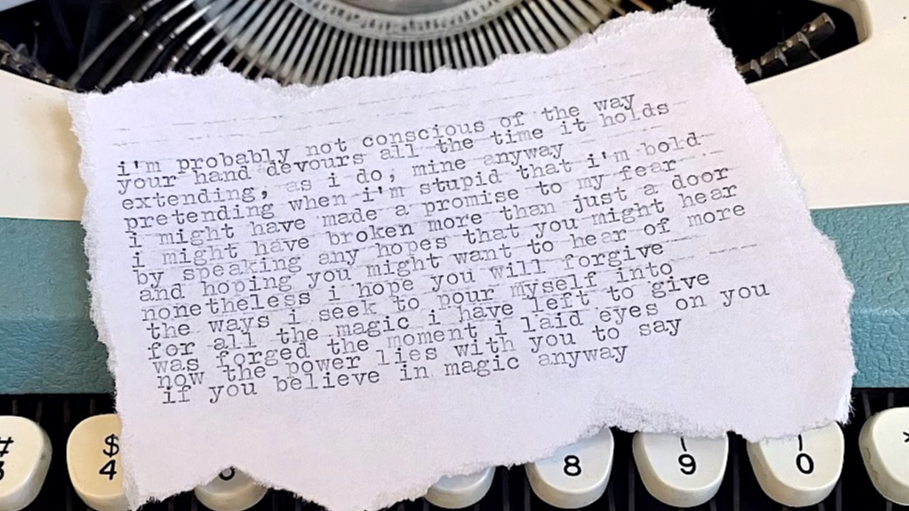 i'm probably not conscious of the way
your hand devours all the time it holds
extending, as i do, mine anyway
pretending when i'm stupid that i'm bold
i might have made a promise to my fear
i might have broken more than just a door
by speaking any hopes that you might hear
and hoping you might want to hear of more
nonetheless i hope you will forgive
the ways i seek to pour myself into
for all the magic i have left to give
was forged the moment i laid eyes on you
now the power lies with you to say
if you believe in magic anyway
#
$
4
8
9
0